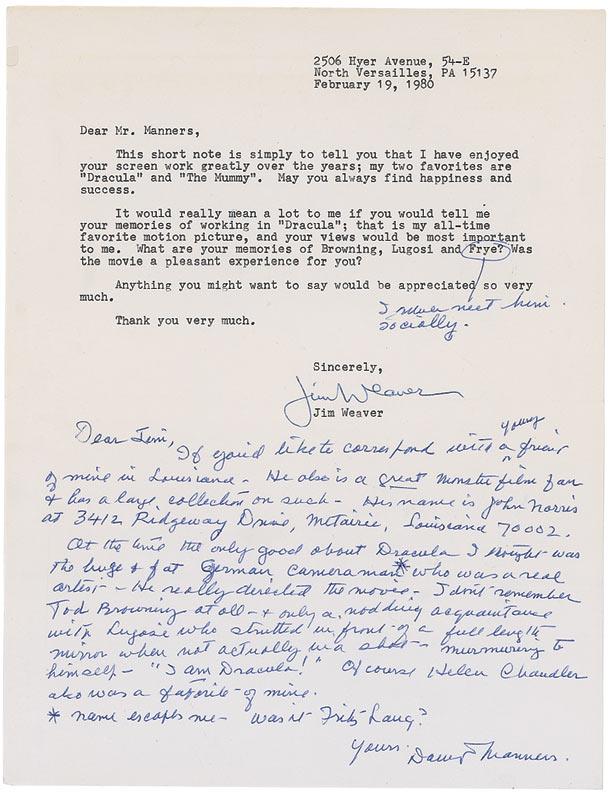 2506 Hyer Avenue, 54-E
North Versailles, PA 15137
February 19, 1980
Dear Mr. Manners,
This short note is simply to tell you that I have enjoyed
your screen work greatly over the years; my two favorites are
"Dracula" and "The Mummy". May you always find happiness and
success.
It would really mean a lot to me if you would tell me
your memories of working in "Dracula"; that is my all-time
favorite motion picture, and your views would be most important
to me. What are your memories of Browning, Lugosi and Frye? Was
the movie a pleasant experience for you?
Anything you might want to say would be appreciated so very
much.
I never met him
socially.
Thank you very much.
Sincerely,
Jim Weaver
Jim Weaver
Dear Jim,
If you'd like to correspond with a young friend
of mine in Louisiana - He also is a great monster film fan
& has a large collection on such - His name is John Norris
at 3412 Ridgeway Drive, Metairie, Louisiana 70002.
At the time the only good about Dracula I thought was
the huge & fat German cameraman* who was a real
artist - He really directed the movie. I don't remember
Tod Browning at all - & only a nodding acquaintance
with Lugosi who strutted in front of a full length
mirror when not actually in a shot - murmuring to
himself - "I am Dracula!" Of course Helen Chandler
also was a favorite of mine.
* name escapes me - was it Fritz Lang?
Yours,
David Manners.